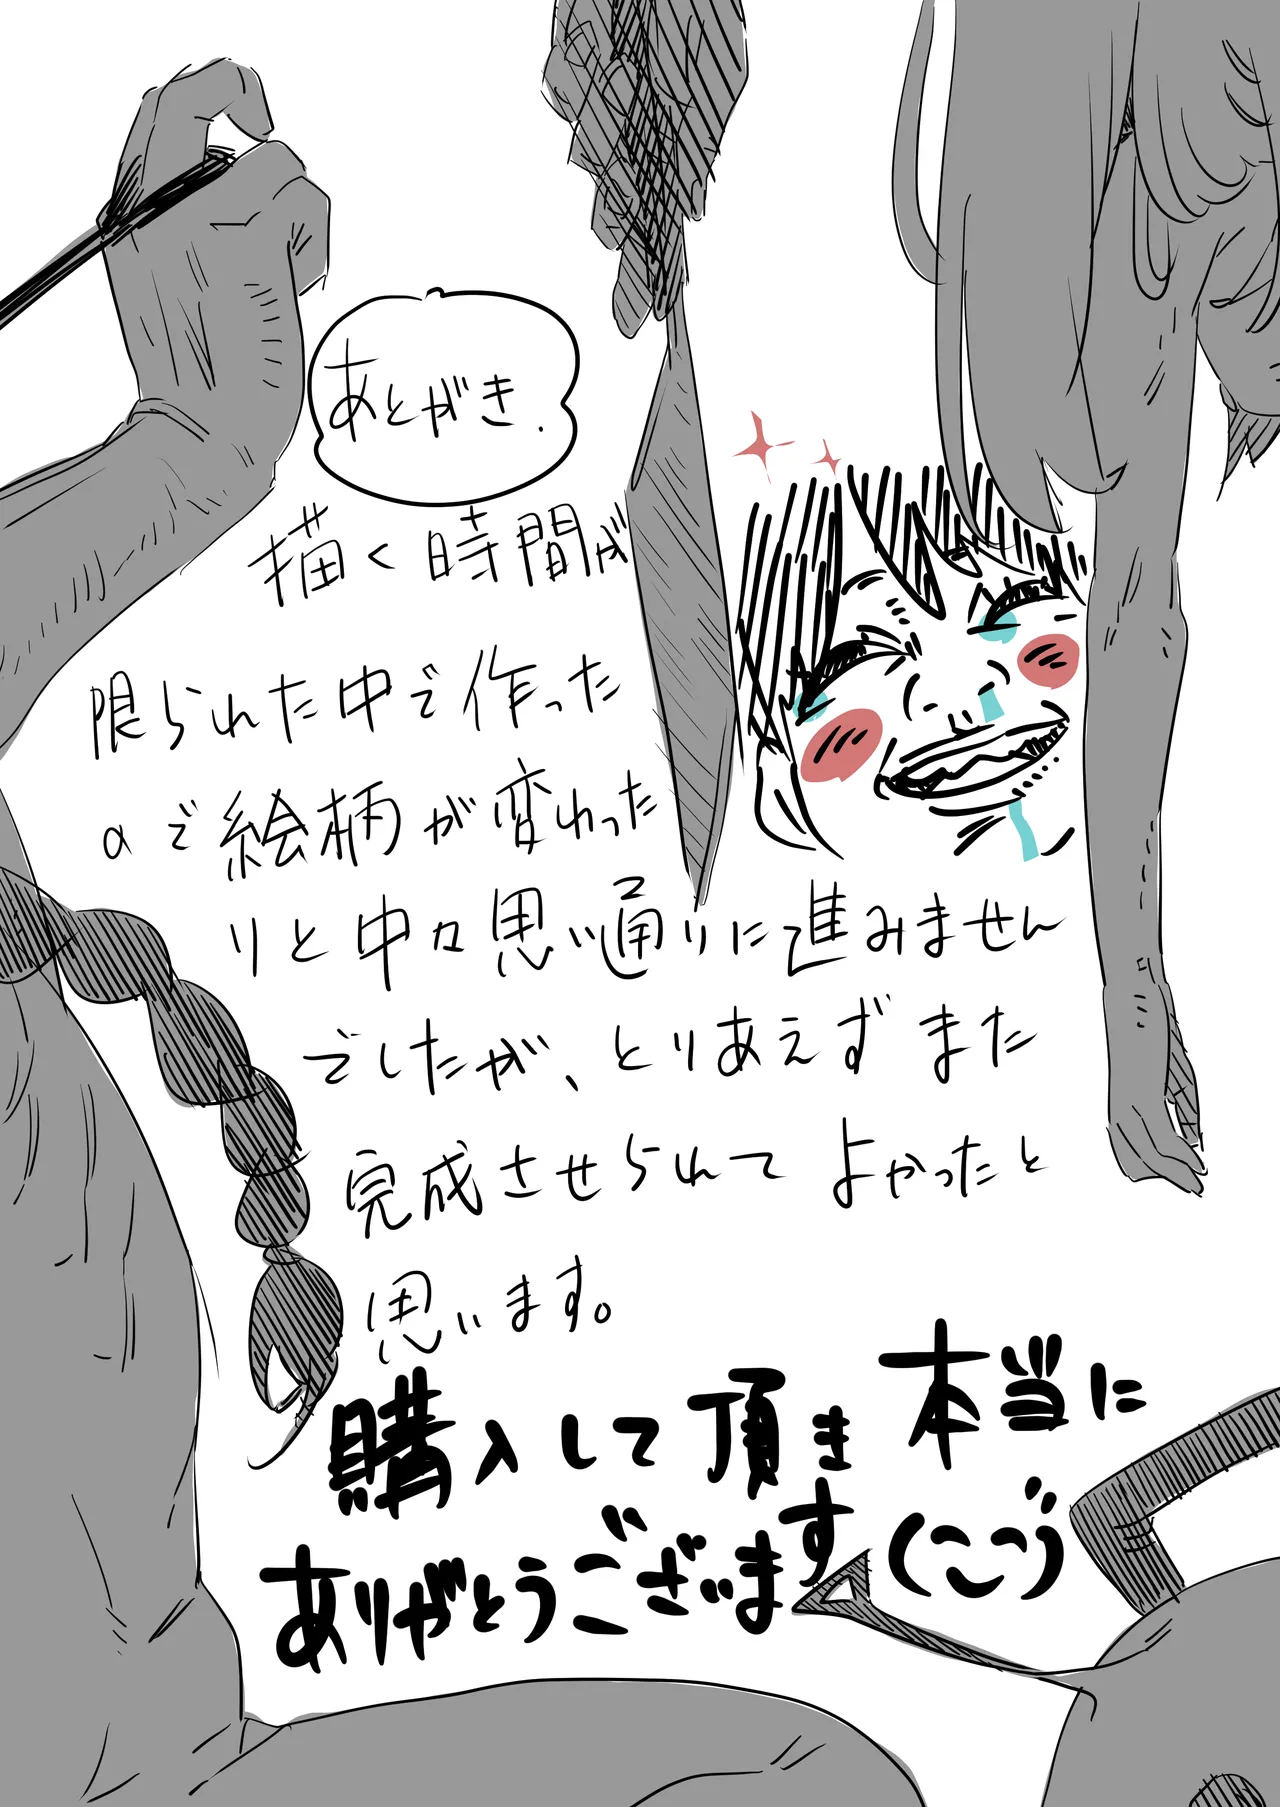 あとがき.
描く時間が
限られた中で作った
ので絵柄が変わった
りと中々思い通りに進みません
でしたが、とりあえずまた
完成させられてよかったと
思います。
購入して頂き本当に
ありがとうございます(ここう)